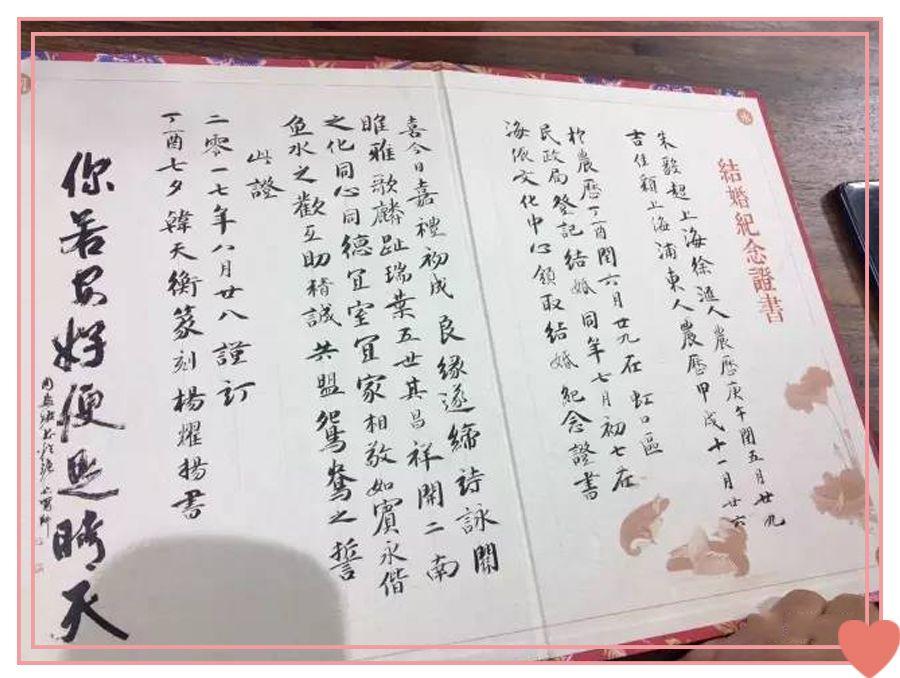 結婚紀念證書
朱毅超上海徐進人農歷庚午閏五月廿九
吉佳穎上海浦東人農歷甲戌十一月廿六
於農歷丁酉閏六月廿九在虹口區
民政局登記結婚同年七月初七在
海派文化中心領取結婚紀念證書
喜今日嘉禮初成良緣遂締詩詠關
睢雅歌麟趾瑞葉五世其昌祥開二南
之化同心同德宜室宜家相敬如賓永偕
魚水之歡互助精誠共盟鴛鴦之誓
此證
二零一七年八月廿八謹訂
丁酉七夕韓天衡篆刻楊耀揚書
你若安好便是晴天